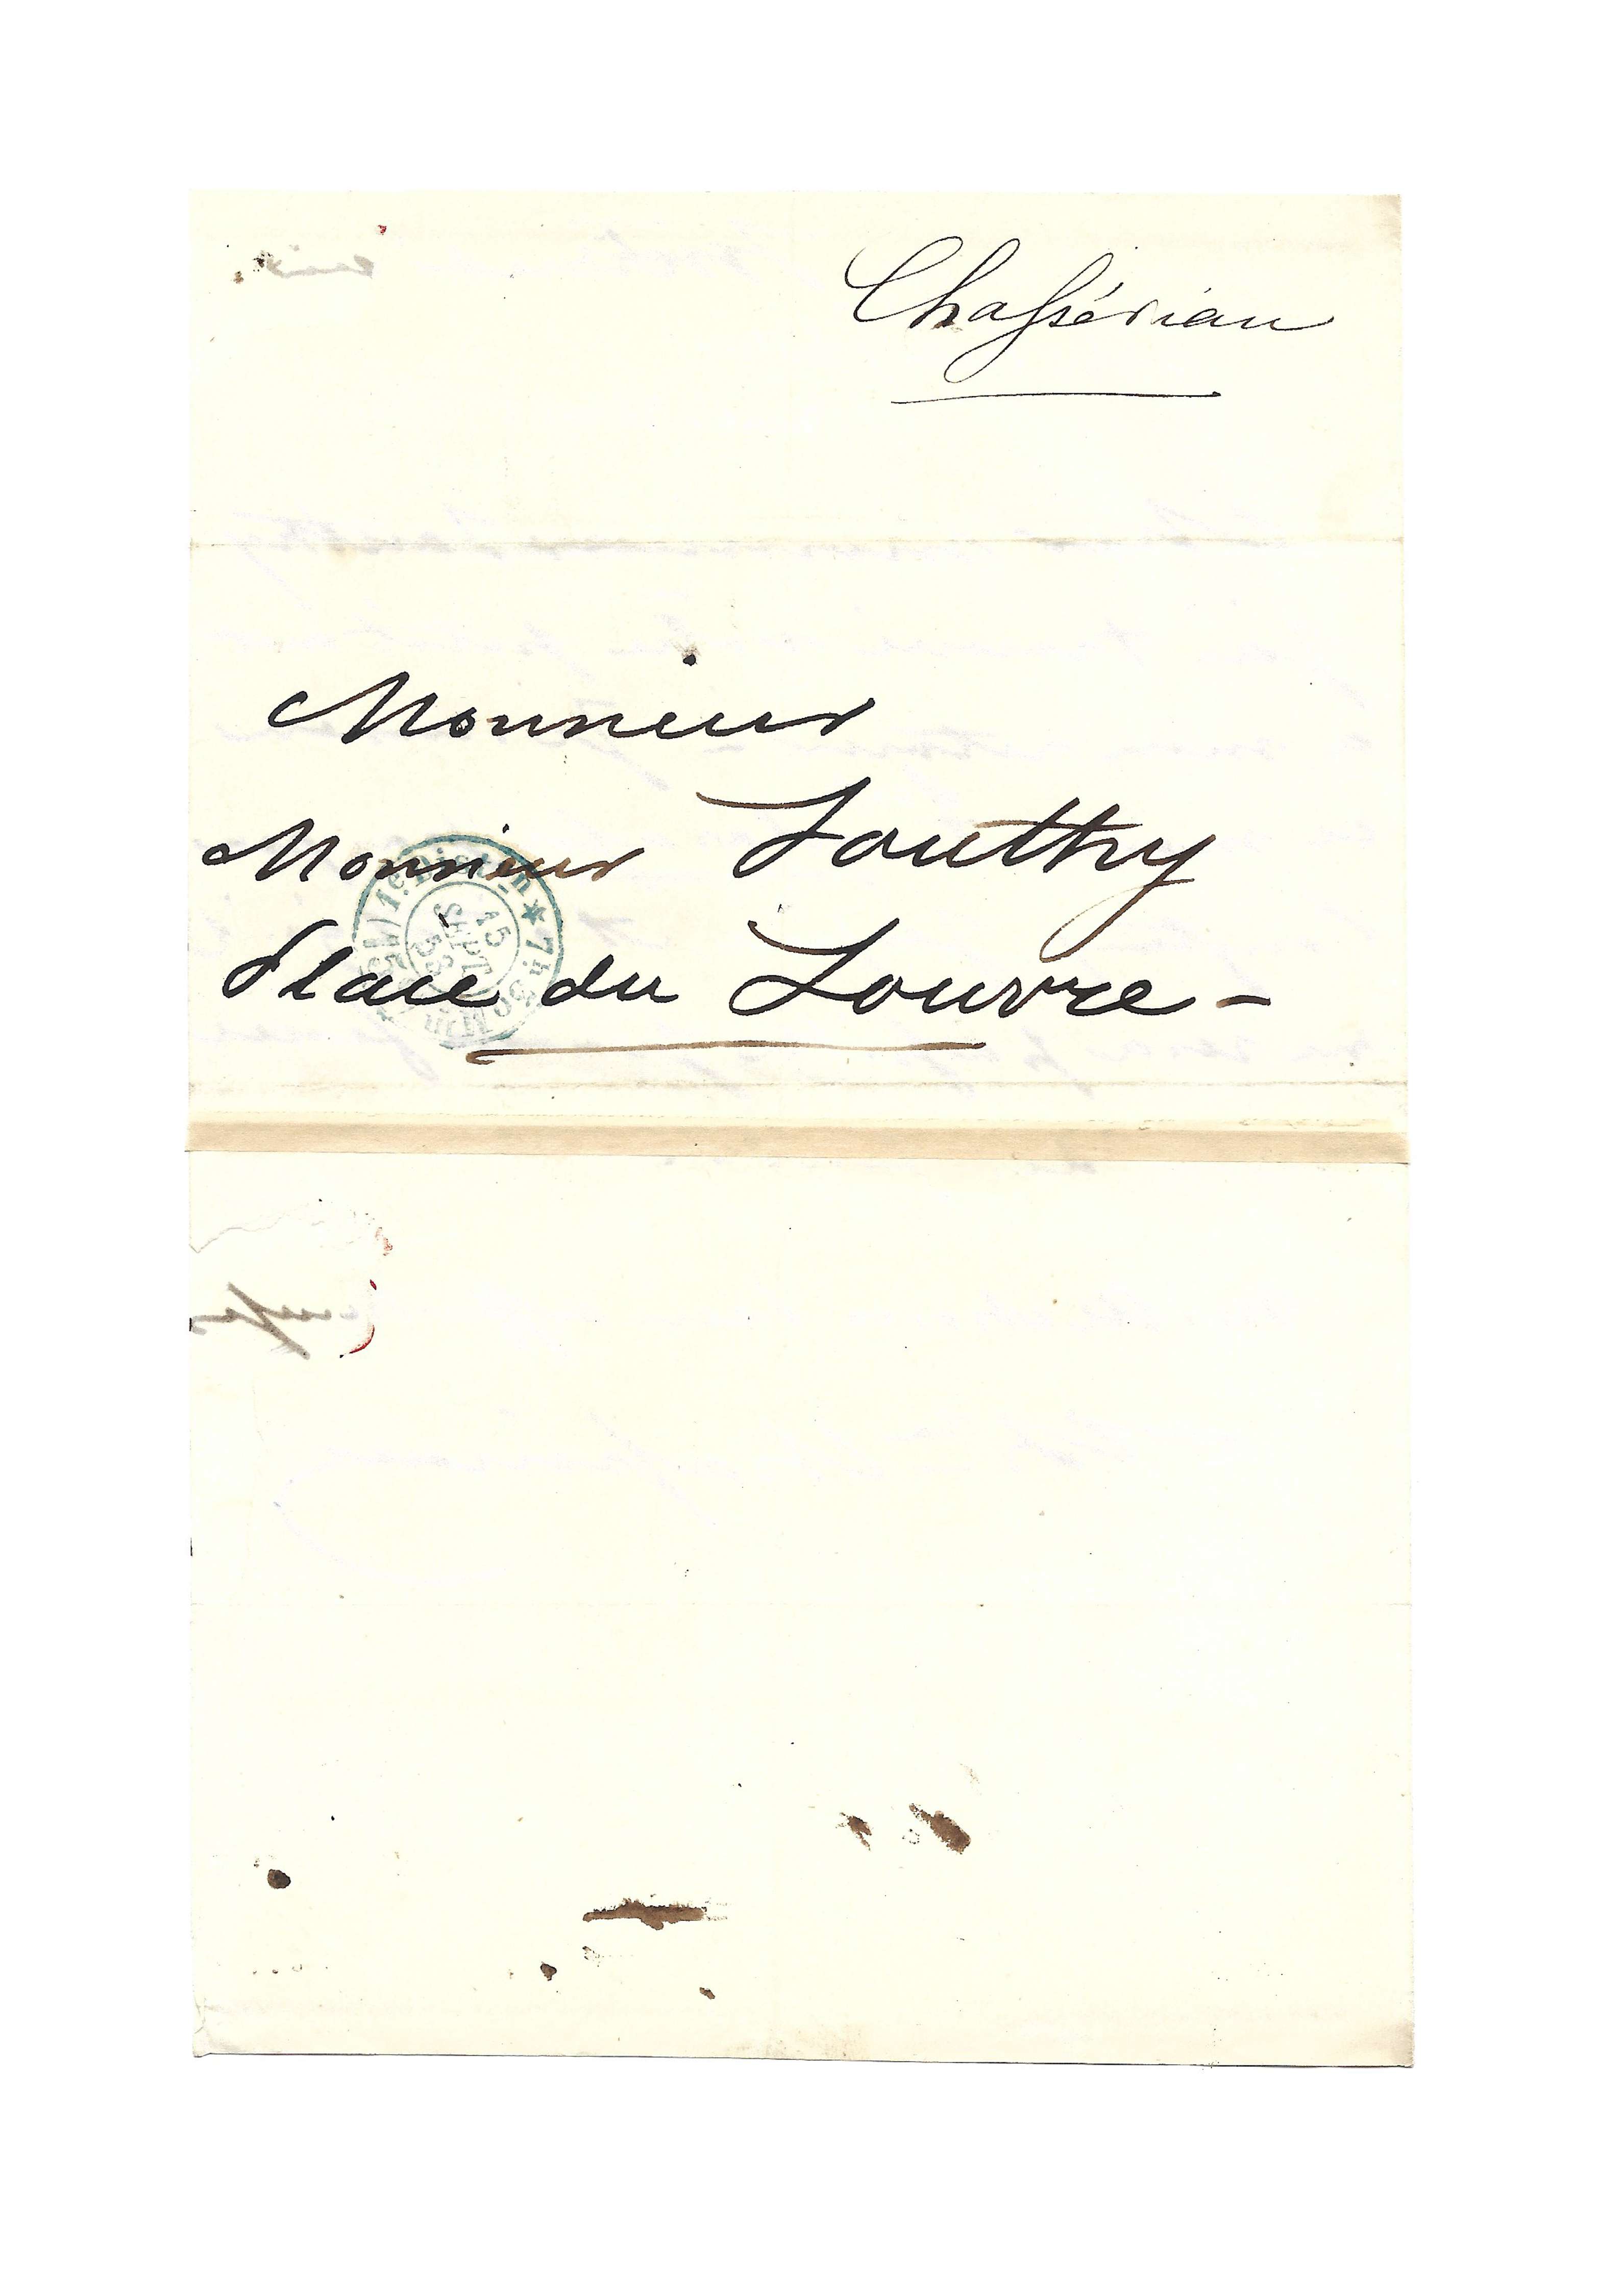 Chassériau
Monsieur
Monsieur Southy
Place du Louvre -
1e. Dist.on * 7h. 30 Min
15
SEPT.
53